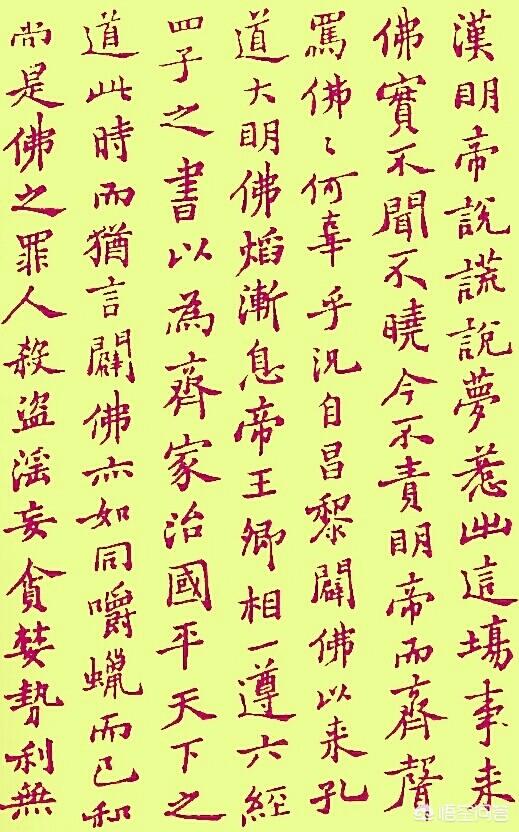 漢明帝說謊說夢惹出這場事來
佛實不聞不曉今不責明帝而齊聲
罵佛〻何辜乎況自昌黎闢佛以来孔
道大明佛焰漸息帝王卿相一遵六經
四子之書以為齊家治國平天下之
道此時而猶言闢佛亦如同嚼蠟而已和
尚是佛之罪人殺盜淫妄貪婪勢利無
悟空问答